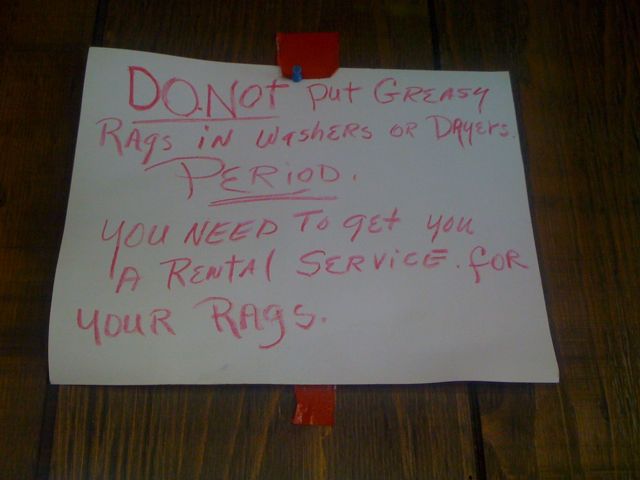 DO NOT put GREASY
RAgs iN WASHERS OR DRyers.
PERIOD.
YOU NEED To get you
A RENTAl SERVICE. foR
YOUR RAgs.